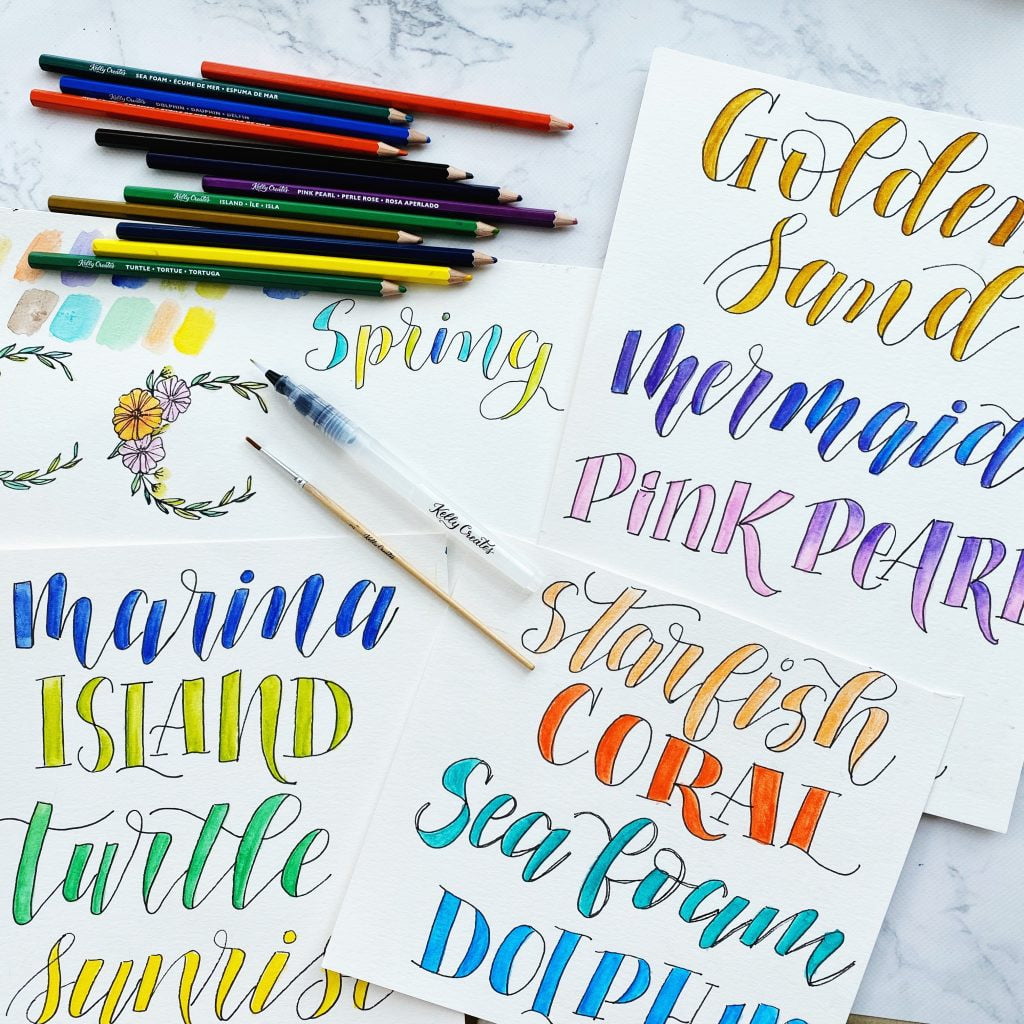 Kelly Creates SEA FOAM • ÉCUME DE MER • ESPUMA DE MAR
Kelly Creates DOLPHIN • DAUPHIN • DELFIN
Kelly Creates PINK PEARL • PERLE ROSE • ROSA APERLADO
Kelly Creates ISLAND • ÎLE • ISLA
Kelly Creates TURTLE • TORTUE • TORTUGA
Spring
Kelly Creates
Kelly Creates
Golden
Sand
Mermaid
Pink Pearl
marina
ISLAND
turtle
sunrise
starfish
CORAL
Sea foam
DOLPHIN